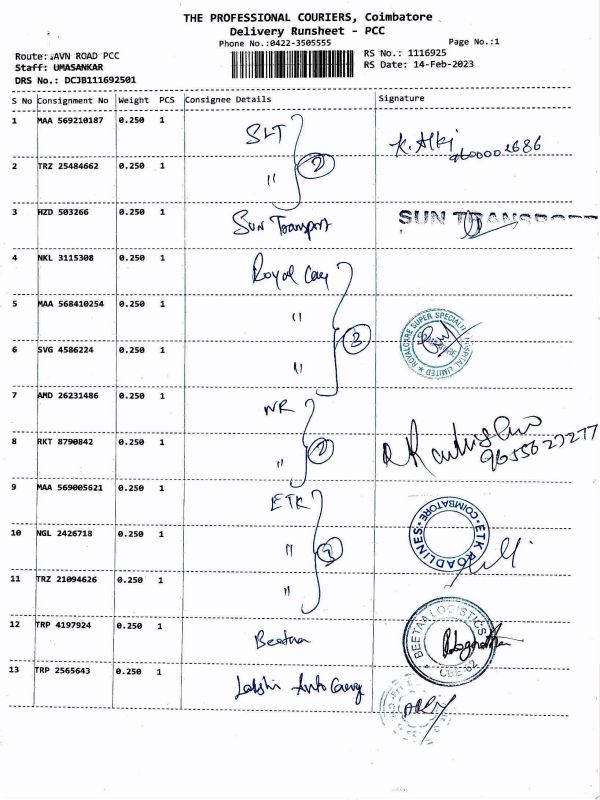 THE PROFESSIONAL COURIERS, Coimbatore
Delivery Runsheet - PCC
Phone No.:0422-3505555 Page No.:1
Route: AVN ROAD PCC RS No.: 1116925
Staff: UMASANKAR RS Date: 14-Feb-2023
DRS No.: DCJB111692501
S No Consignment No Weight PCS Consignee Details Signature
1 MAA 569210187 0.250 1 SLT
2 TRZ 25484662 0.250 1 "
3 HZD 503266 0.250 1 Sun Transport SUN TRANSPORT
4 NKL 3115308 0.250 1 Royal Cay
5 MAA 568410254 0.250 1 " ROYALCARE SUPER SPECIALITY HOSPITAL LIMITED
6 SVG 4586224 0.250 1 "
7 AMD 26231486 0.250 1
8 RKT 8790842 0.250 1 "
9 MAA 569005621 0.250 1 ETK
10 NGL 2426718 0.250 1 " ETK ROADLINES COIMBATORE
11 TRZ 21094626 0.250 1 "
12 TRP 4197924 0.250 1 Beetaa BEETAA LOGISTICS CBE-62
13 TRP 2565643 0.250 1